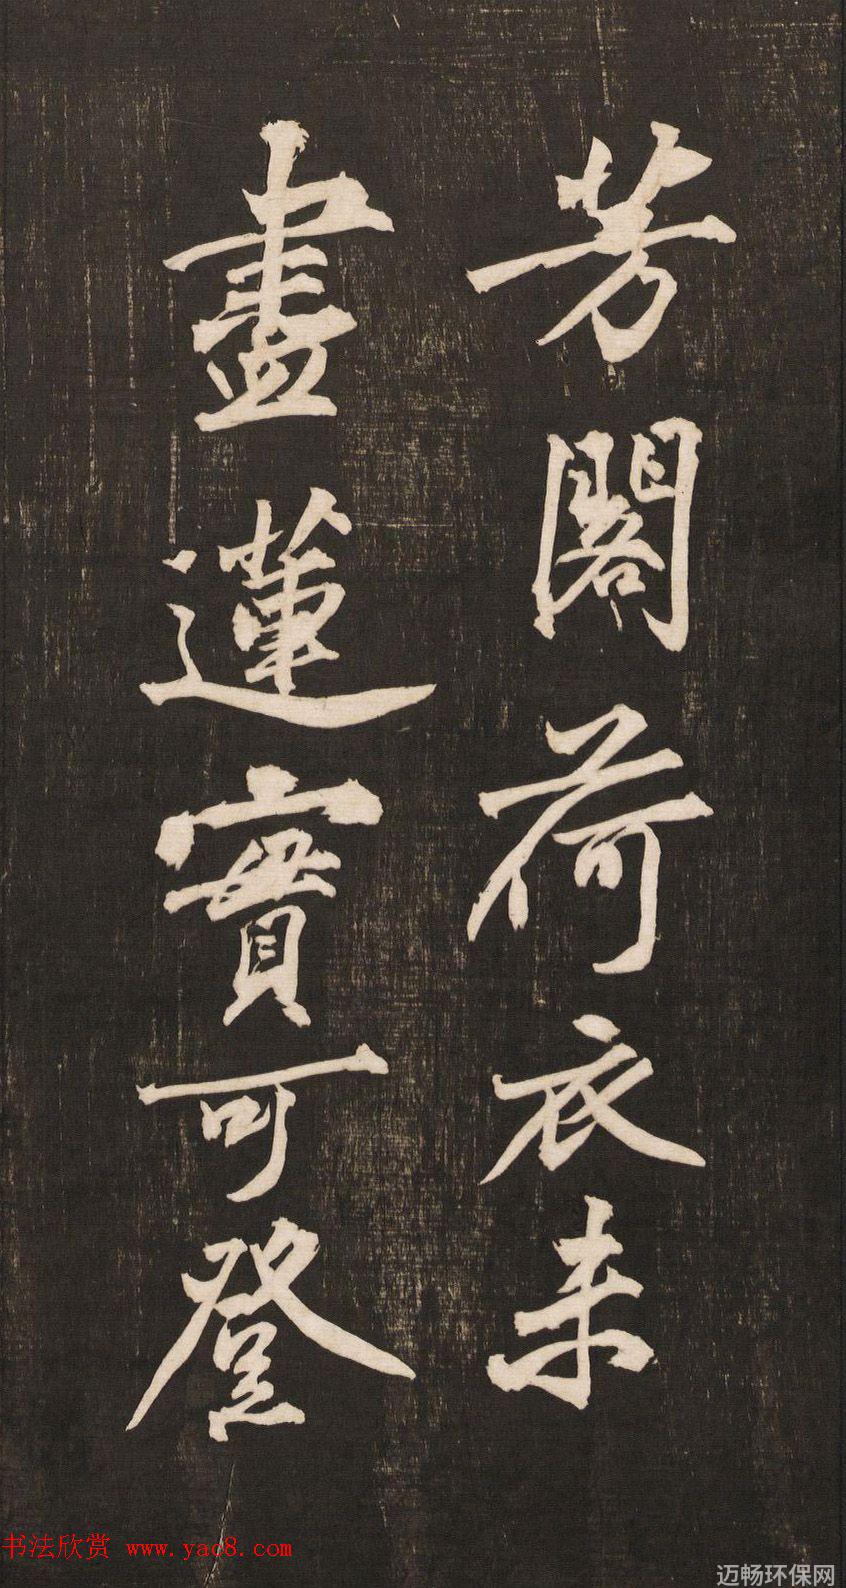 芳閣荷衣未
盡蓮實可登
书法欣赏 www.yac8.com
迈畅环保网